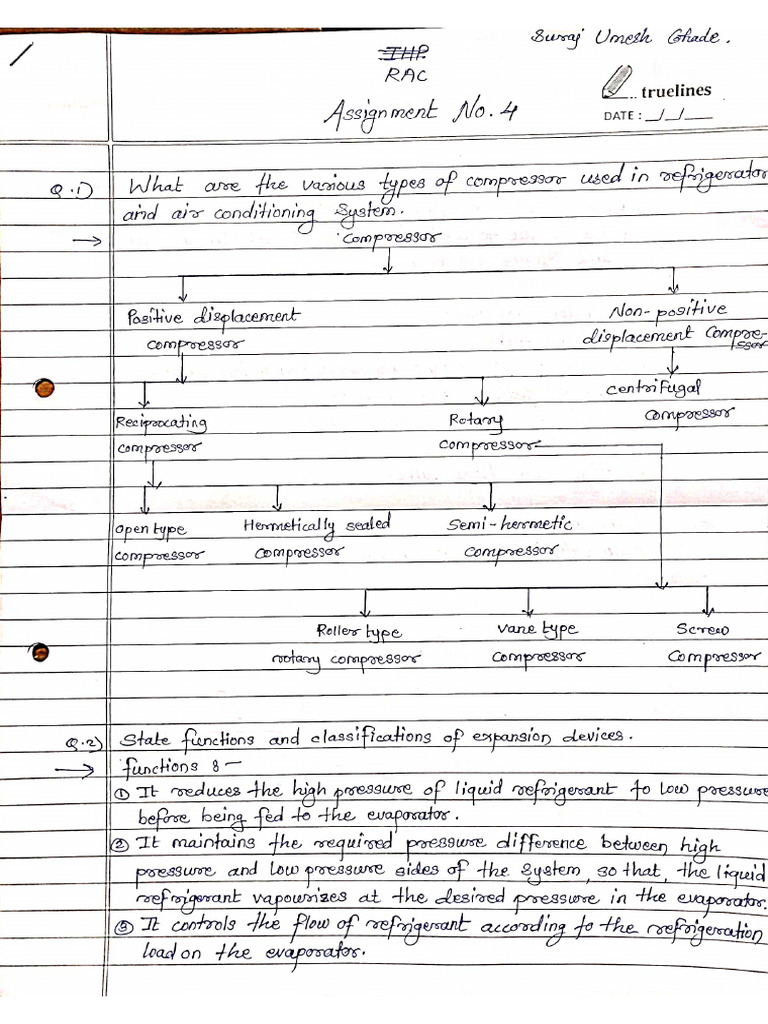 Suraj Umesh Ghade.
IHP
RAC
truelines
Assignment No. 4
DATE: _/_/__
Q.1) What are the various types of compressor used in refrigerator
and air conditioning System.
→ Compressor
Positive displacement Non-positive
compressor displacement Compre-
ssor
centrifugal
compressor
Reciprocating Rotary
compressor compressor
Open type Hermetically sealed Semi-hermetic
compressor compressor compressor
Roller type vane type Screw
rotary compressor compressor Compressor
Q.2) State functions and classifications of expansion devices.
→ functions :-
① It reduces the high pressure of liquid refrigerant to low pressure
before being fed to the evaporator.
② It maintains the required pressure difference between high
pressure and low pressure sides of the System, so that, the liquid
refrigerant vapourizes at the desired pressure in the evaporator.
③ It controls the flow of refrigerant according to the refrigeration
load on the evaporator.